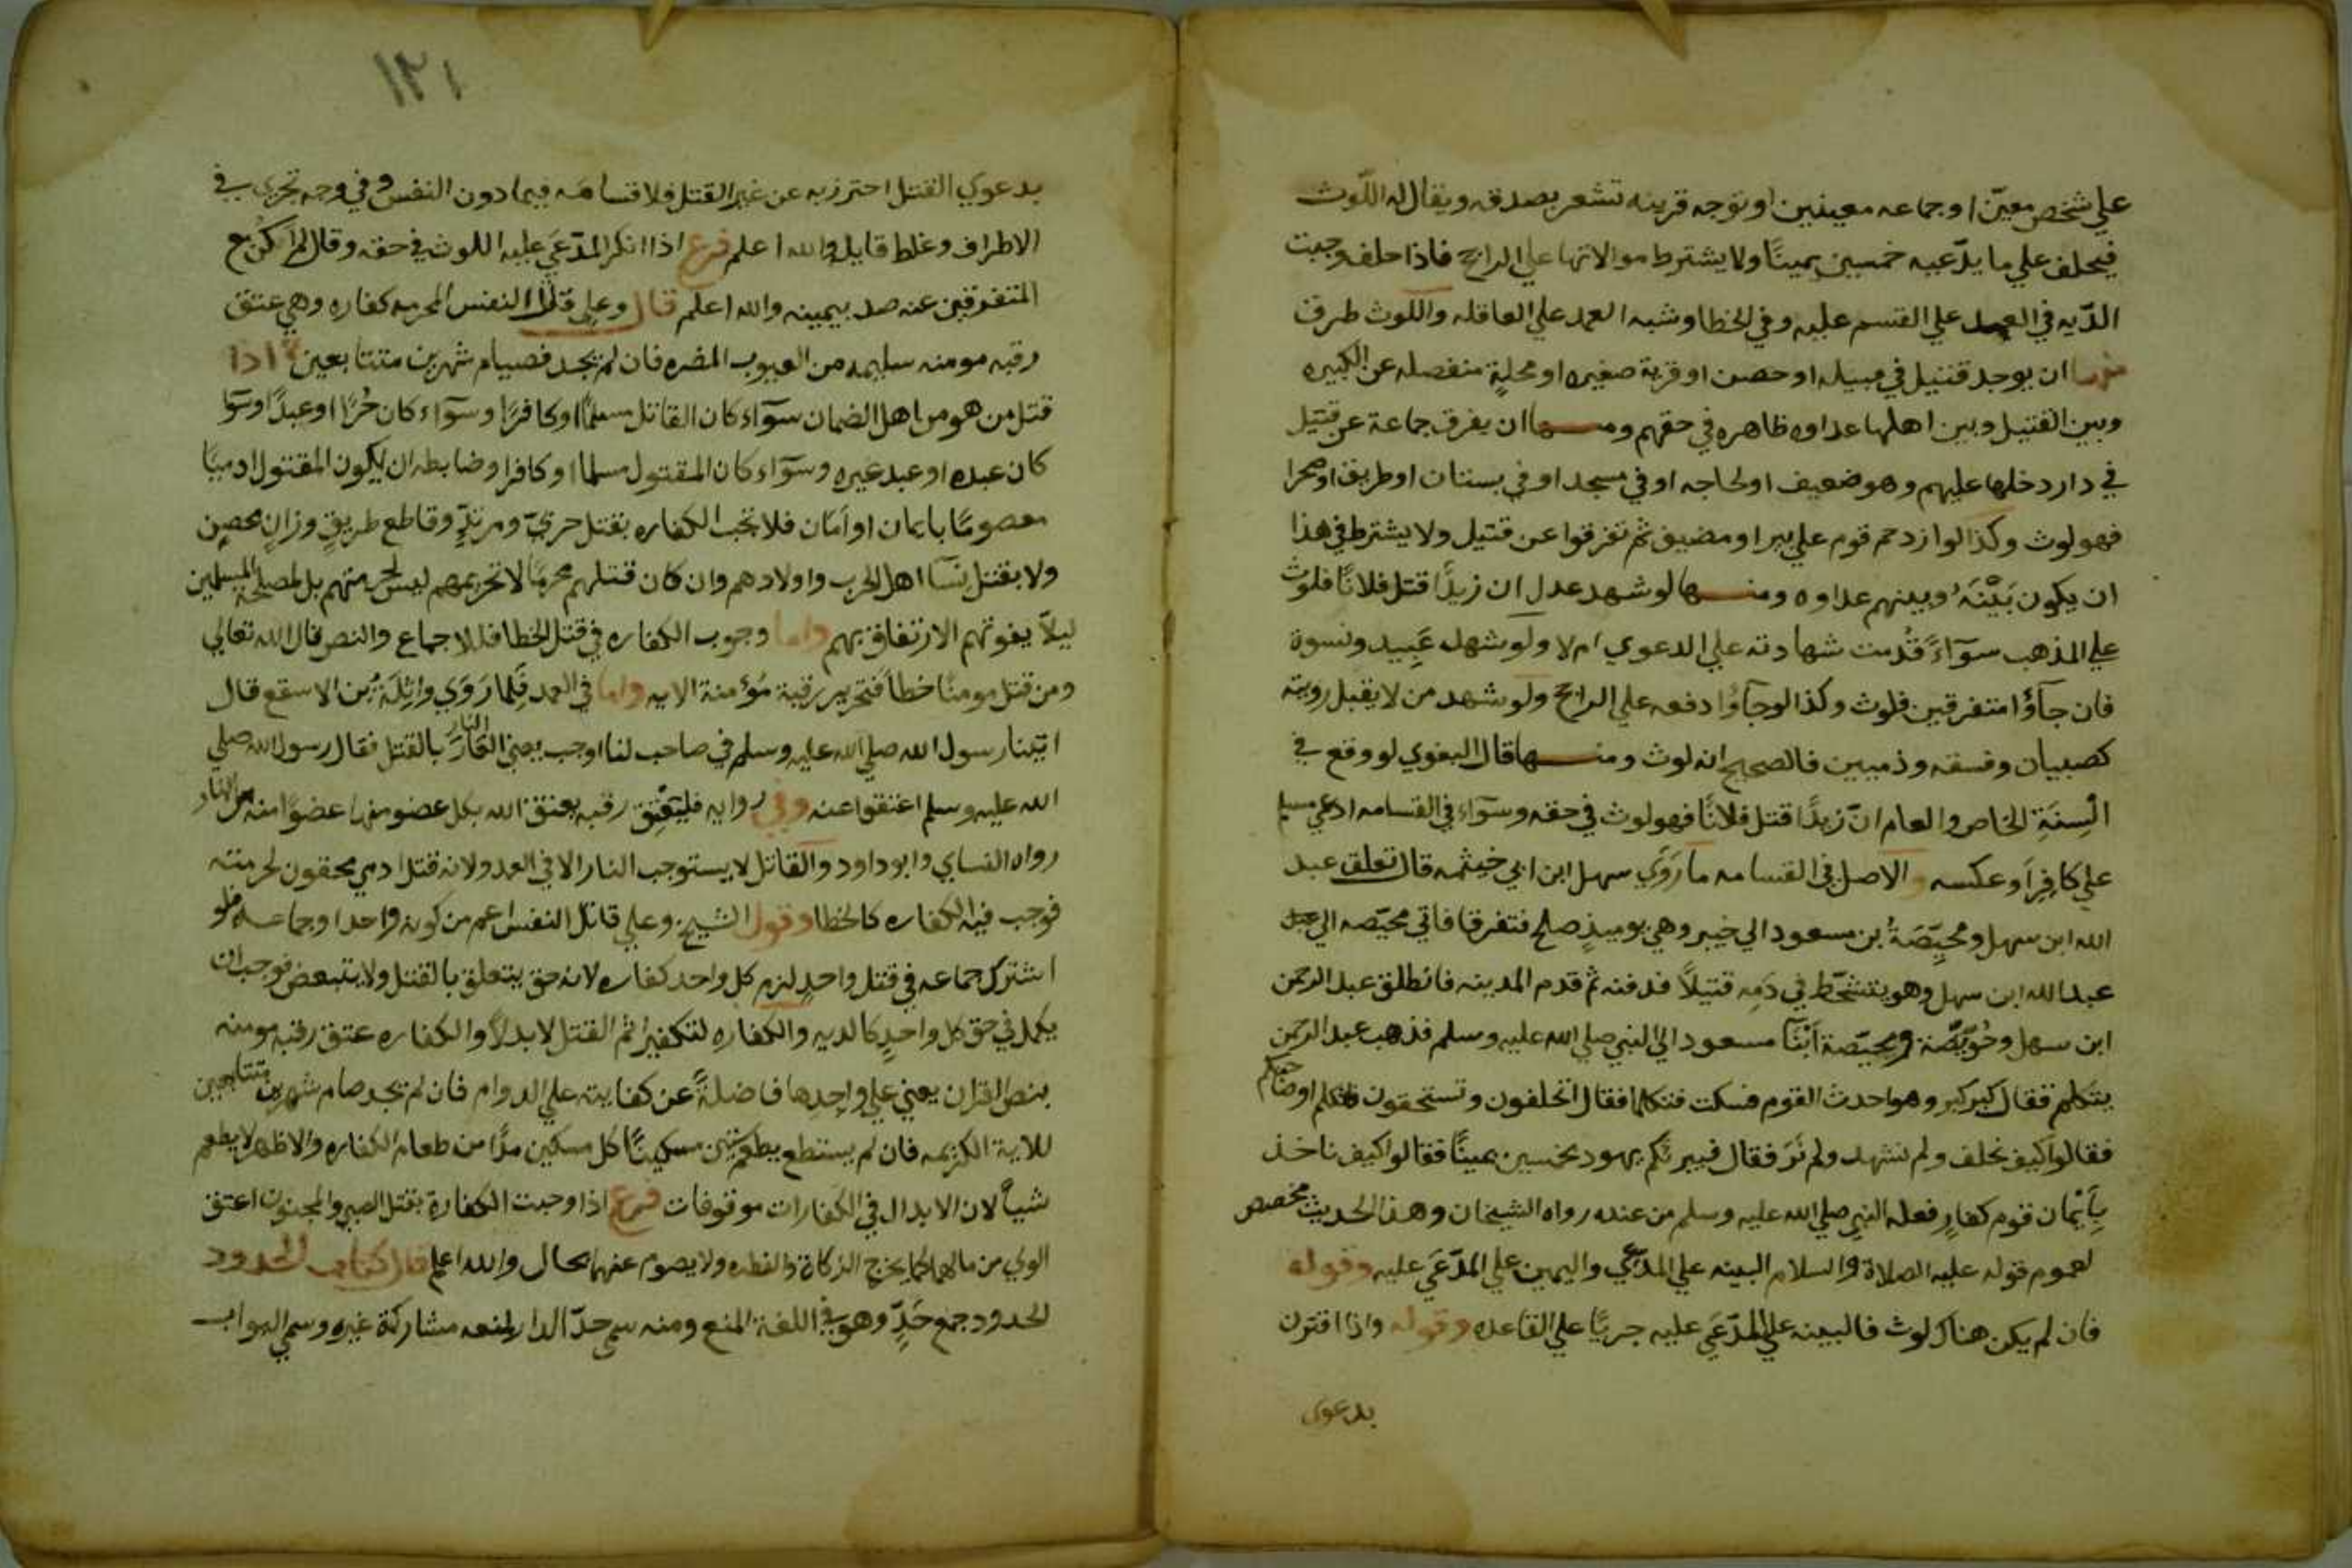 علي شخص معيّن او جماعه معينين او توجه قرينه تشعر بصدقه ويقال له اللّوث
فيحلف علي ما يدّعيه خمسين يمينًا ولا يشترط موالاتها علي الراجح فاذا حلف وجبت
الدّيه في العمد علي القسم عليه وفي الخطا وشبه العمد علي العاقله واللوث طرق
منها ان يوجد قتيل في قبيله او حصن او قرية صغيره او محلةٍ منفصله عن الكبيره
وبين القتيل وبين اهلها عداوه ظاهره في حقهم ومنها ان يفرق جماعة عن قتيل
في دار دخلها عليهم وهو ضعيف او لحاجه او في مسجد او في بستان او طريق او صحرا
فهو لوث وكذا لو ازدحم قوم علي بير او مضيق ثم تفرقوا عن قتيل ولا يشترط في هذا
ان يكون بَيْنَهُ وبينهم عداوه ومنها لو شهد عدل ان زيدًا قتل فلانًا فلوث
علي المذهب سوآءً قُدمت شهادته علي الدعوي ام لا ولو شهد عَبيد ونسوة
فان جآؤا متفرقين فلوث وكذا لو جآؤا دفعه علي الراجح ولو شهد من لا يقبل رويته
كصبيان وفسقه وذميين فالصحيح انه لوث ومنها قال البغوي لو وقع في
السِنَةِ الخاص والعام انّ زيدًا قتل فلانًا فهو لوث في حقه وسوآء في القسامه ادعي مسلم
علي كافِرٍ او عكسه والاصل في القسامه ما رَوَي سهل ابن ابي خيثمه قال تعلق عبد
الله ابن سهل ومحيِّصَةُ بن مسعود الي خيبر وهي يوميذٍ صلح فتفرقا فاتي محيّصه الي عبد
عبد الله ابن سهل وهو يتشحّط في دَمِه قتيلًا فدفنه ثم قدم المدينه فانطلق عبد الرحمن
ابن سهل وحُوَيّصَة ومحيّصة ابْنَآ مسعود الي النبي صلي الله عليه وسلم فذهب عبد الرحمن
يتكلم فقال كبر كبر وهو احدث القوم فسكت فتكلما فقال اتحلفون وتستحقون قاتلكم او صاحبكم
فقالوا كيف نحلف ولم نشهد ولم نَرَ فقال فيبرئكم يهود بخمسين يمينًا فقالوا كيف ناخذ
بأيْمان قوم كفارٍ فعقله النبي صلي الله عليه وسلم من عنده رواه الشيخان وهذا الحديث مخصص
لعموم قوله عليه الصلاة والسلام البينه علي المدّعي واليمين علي المدّعَي عليه وقوله
فان لم يكن هناك لوث فالبينه علي المدّعَي عليه جريًا علي القاعده وقوله واذا اقترن
بدعوي
١٢١
بدعوي القتل احترز به عن غير القتل فلا قسامَه فيما دون النفس وفي وجه تجري في
الاطراف وغلط قايله والله اعلم فرع اذا انكر المدّعَي عليه اللوث في حقه وقال لم اكن مع
المتفرقين عنه صدق بيمينه والله اعلم قال وعلي قاتل النفس المحرمه كفاره وهي عتق
رقبه مومنه سليمه من العيوب المضره فان لم يجد فصيام شهرين متتابعين اذا
قتل من هو من اهل الضمان سوآء كان القاتل مسلمًا او كافرًا وسوآء كان حُرًا او عبدًا وسوآ
كان عبده او عبد غيره وسوآء كان المقتول مسلما او كافرا وضابطه ان يكون المقتول ادميًا
معصومًا بايمان او اَمَان فلا تجب الكفاره بقتل حربيّ ومرتدٍّ وقاطع طريقٍ وزانٍ محصنٍ
ولا بقتل نسآ اهل الحرب واولادهم وان كان قتلهم محرمًا لا تحريمهم ليس لحرمتهم بل لمصلحة المسلمين
ليلّا يفوتهم الارتفاق بهم واما وجوب الكفاره في قتل الخطا فللاجماع والنص قال الله تعالي
ومن قتل مومنًا خطأً فتحرير رقبة مُؤمنة الايه واما في العمد فَلِما رَوَي واثِلَةُ بن الاسقع قال
اتينا رسول الله صلي الله عليه وسلم في صاحب لنا اوجب يعني النارَ بالقتل فقال رسول الله صلي
الله عليه وسلم اعتقوا عنه وفي روايه فليَعْتِق رقبه يعتق الله بكل عضو منها عضوًا منه من النار
رواه النساي وابو داود والقاتل لا يستوجب النار الا في العمد ولانه قتل ادمي محقون لحرمته
فوجب فيه الكفاره كالخطا وقول الشيخ وعلي قاتل النفس اعم من كونه واحدا وجماعه فلو
اشترك جماعه في قتل واحدٍ لزم كل واحد كفاره لانه حق يتعلق بالقتل ولا يتبعض فوجب ان
يكمل في حق كل واحدٍ كالديه والكفاره لتكفير اثم القتل لا بدلًا والكفاره عتق رقبه مومنه
بنص القران يعني علي واجدها فاضلةً عن كفايته علي الدوام فان لم يجد صام شهرين متتابعين
للاية الكريمه فان لم يستطع يطعم ستين مسكينًا كل مسكين مدًّا من طعام الكفاره والاظهر لا يطعم
شيأً لان الابدال في الكفارات موقوفات فرع اذا وجبت الكفارة بقتل الصبي والمجنون اعتق
الولي من مالهما كما يخرج الزكاة والفطره ولا يصوم عنهما بحال والله اعلم قال كتاب الحدود
الحدود جمع حَدٍّ وهو في اللغة المنع ومنه سمي حدّ الدار لمنعه مشاركة غيره وسمي البواب